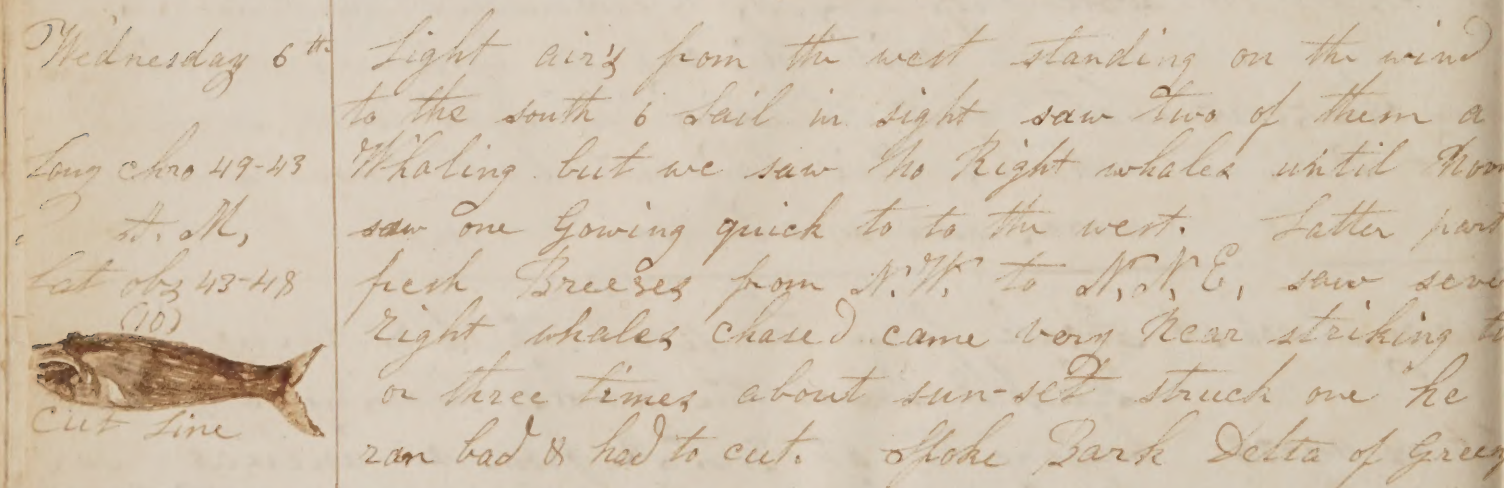 Wednesday 6th
Long chro 49-43
A. M,
Lat obs 43-48
(10)
Cut Line
Light air's from the west standing on the wind
to the south 6 Sail in sight saw two of them a
Whaling but we saw No Right whales until Noon
saw one Gowing quick to to the west. Latter part
fresh Breezes from N.W. to N,N,E, saw seve
right whales chased came very Near striking t
or three times about sun-set struck one he
ran bad & had to cut. Spoke Bark Delta of Green